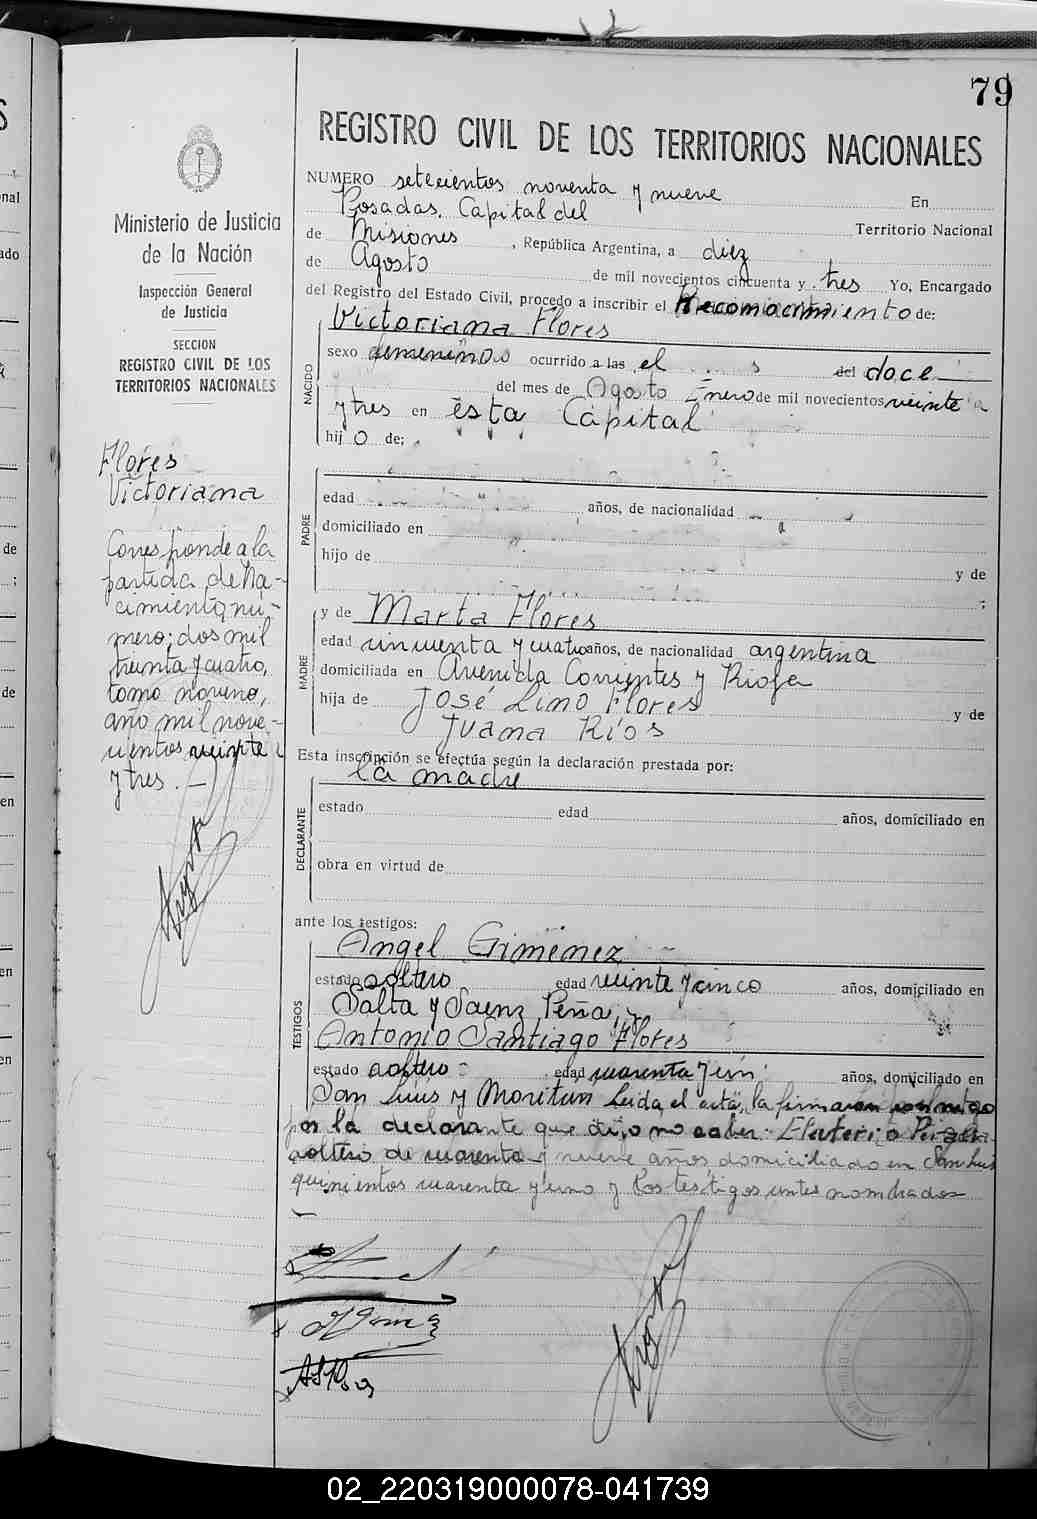 79
REGISTRO CIVIL DE LOS TERRITORIOS NACIONALES
NUMERO setecientos noventa y nueve En
Posadas, Capital del Territorio Nacional
de Misiones, República Argentina, a diez
de Agosto de mil novecientos cincuenta y tres Yo, Encargado
del Registro del Estado Civil, procedo a inscribir el Reconocimiento de:
Victoriana Flores
NACIDO
sexo femenino ocurrido a las el del doce
del mes de Agosto Enero de mil novecientos veinte
y tres en esta Capital
hijo de:
PADRE
edad años, de nacionalidad
domiciliado en
hijo de
y de
;
MADRE
y de Marta Flores
edad cincuenta y cuatro años, de nacionalidad argentina
domiciliada en Avenida Corrientes y Rioja
hija de José Lino Flores y de
Juana Ríos
Esta inscripción se efectúa según la declaración prestada por:
la madre
DECLARANTE
estado edad años, domiciliado en
obra en virtud de
ante los testigos:
TESTIGOS
Angel Giménez
estado soltero edad veinte y cinco años, domiciliado en
Salta y Saenz Peña, y
Antonio Santiago Flores
estado soltero edad cuarenta y un años, domiciliado en
San Luis y Moritán Leida el acta, la firmaron conmigo
por la declarante que dijo no saber: Eleuterio
soltero de cuarenta y nueve años domiciliado en San Luis
quinientos cuarenta y uno y los testigos antes nombrados
Ministerio de Justicia
de la Nación
Inspección General
de Justicia
SECCION
REGISTRO CIVIL DE LOS
TERRITORIOS NACIONALES
Flores
Victoriana
Corresponde a la
partida de Na-
cimiento, nú-
mero; dos mil
treinta y cuatro,
tomo noveno,
año mil nove-
cientos veinte
y tres.—
02_220319000078-041739